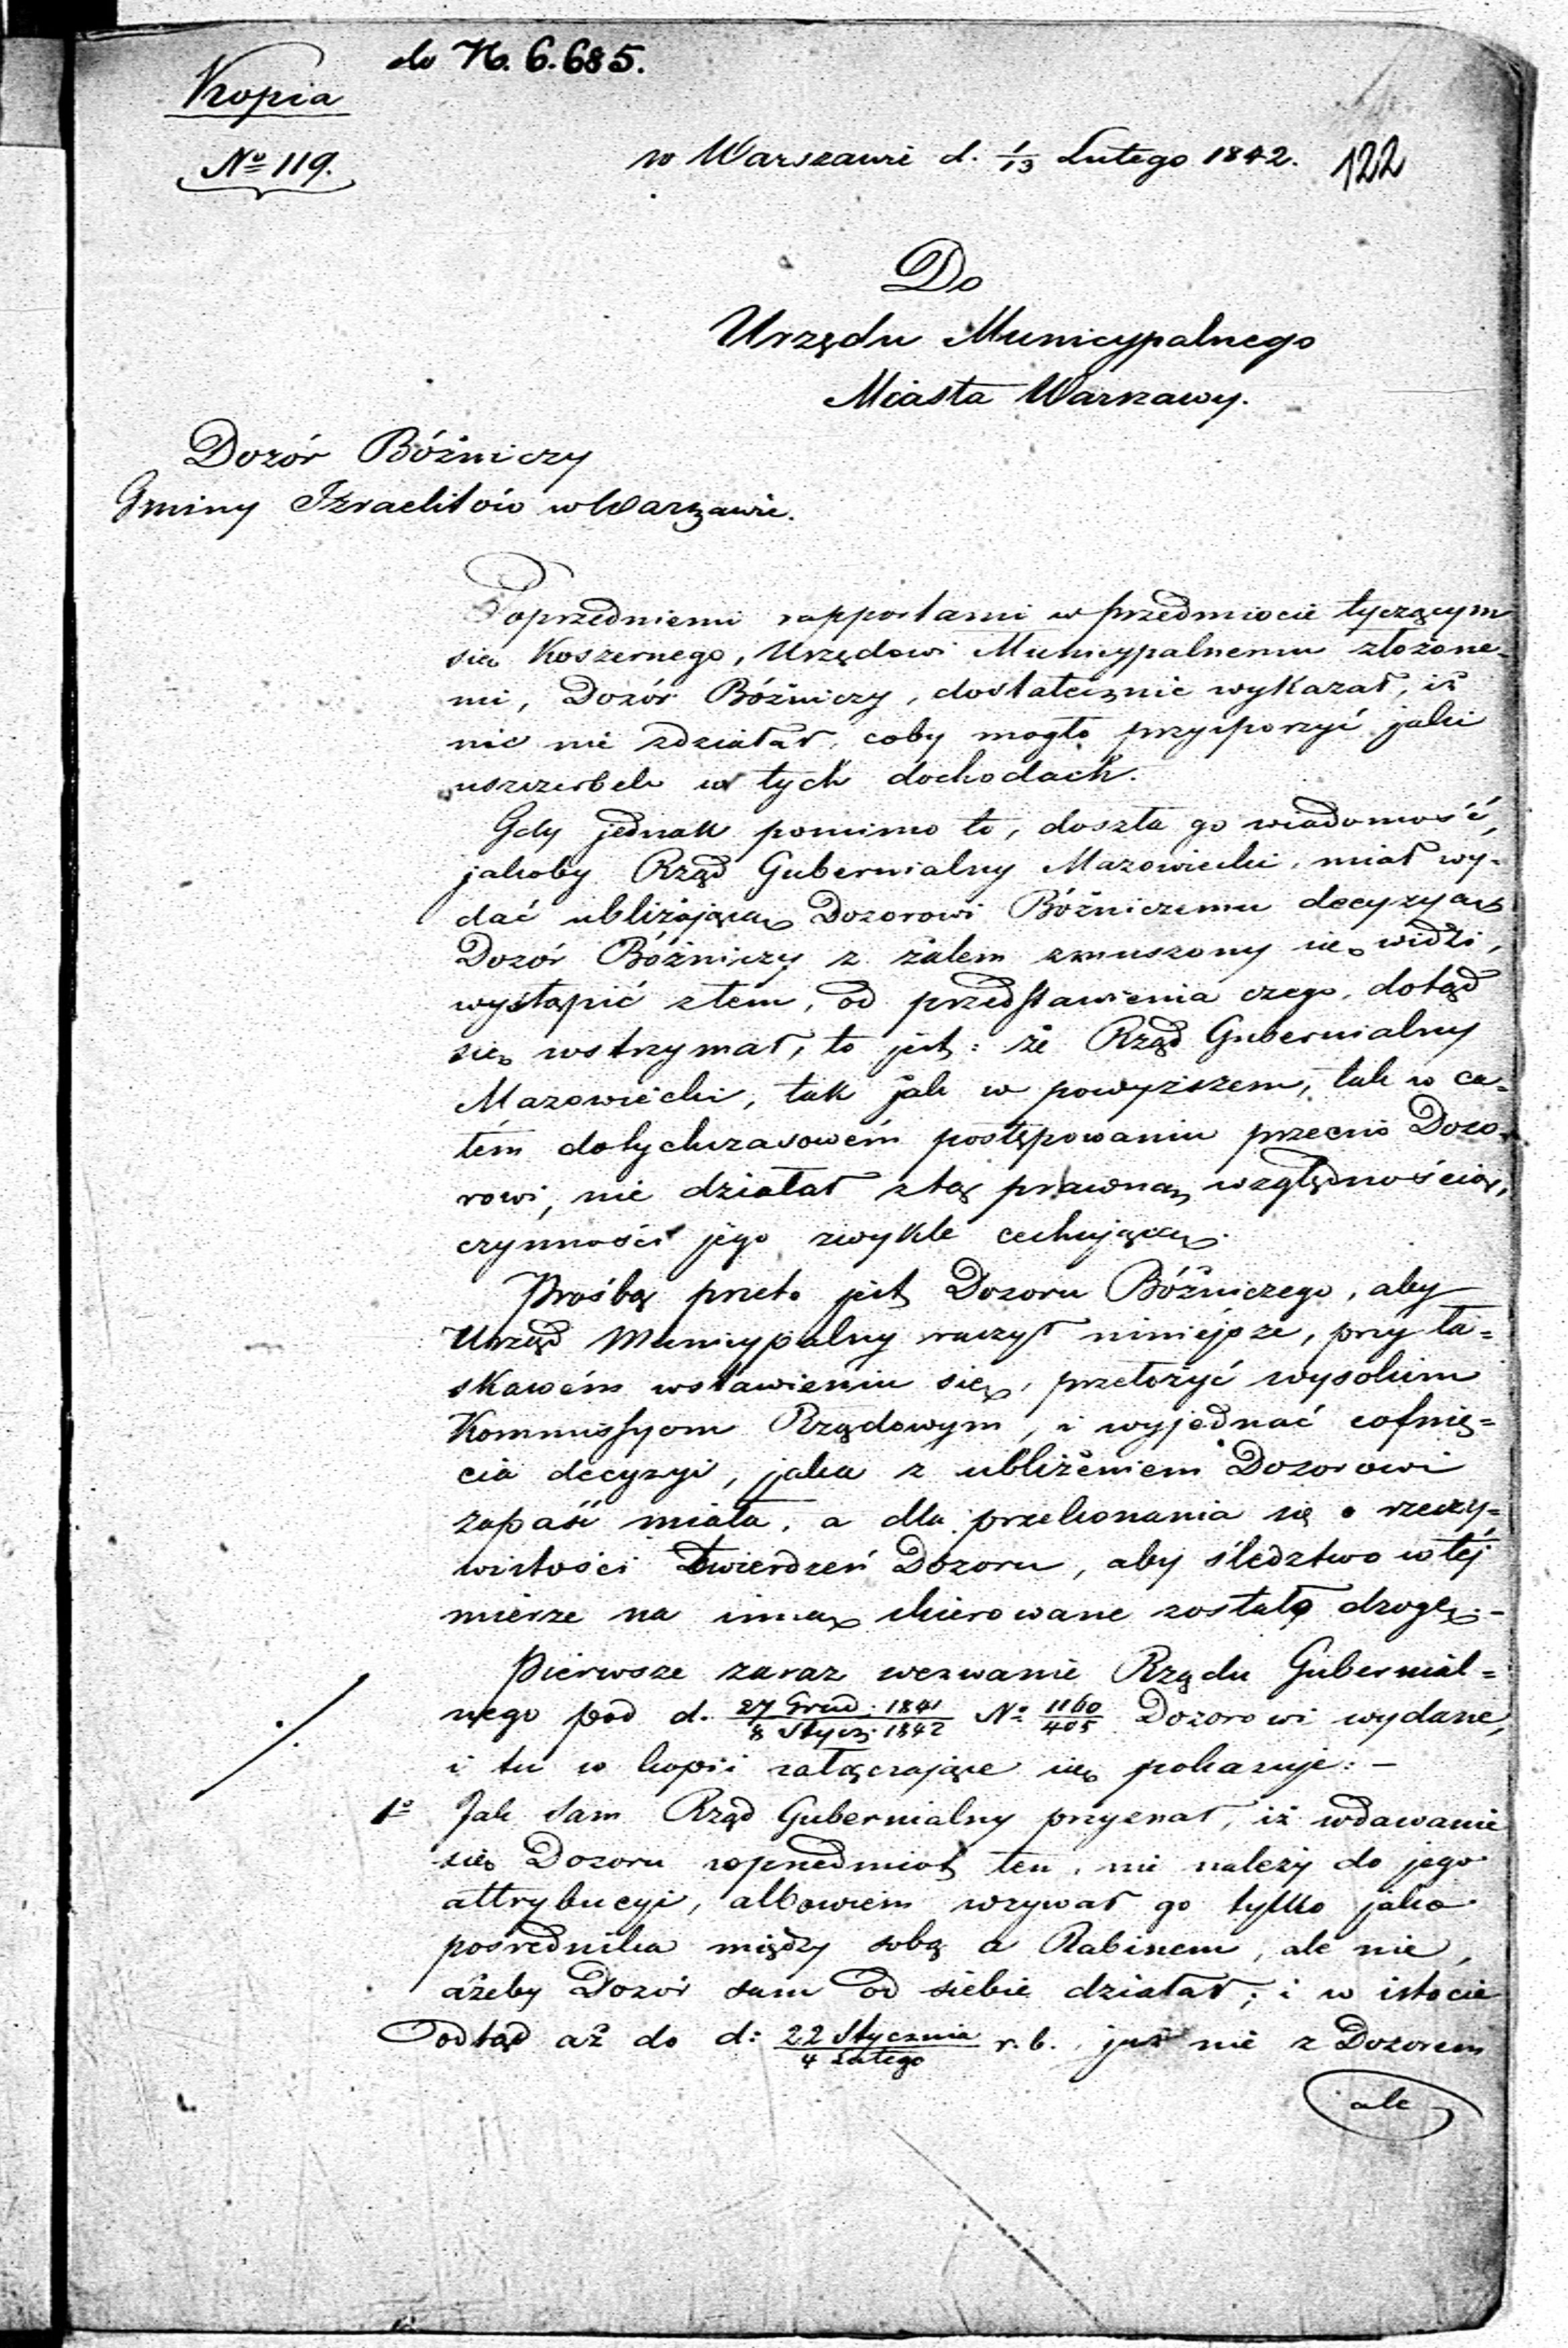 do N. 6.685.
Kopia
No 119.
w Warszawie d. 1/13 Lutego 1842.
122
Do
Urzędu Municypalnego
Miasta Warszawy.
Dozór Bóżniczy
Gminy Izraelitów w Warszawie.
Poprzedniemi rapportami w przedmiocie tyczącym
się Koszernego, Urzędowi Municypalnemu złożone-
mi, Dozór Bóżniczy, dostatecznie wykazał, iż
nic nie zdziałał, coby mogło przysporzyć jaki
uszczerbek w tych dochodach.
Gdy jednak pomimo to, doszła go wiadomość,
jakoby Rząd Gubernialny Mazowiecki, miał wy-
dać ubliżającą Dozorowi Bóżniczemu decyzyą
Dozór Bóżniczy z żalem zmuszony się widzi,
wystąpić z tem, od przedstawienia czego, dotąd
się wstrzymał, to jest: że Rząd Gubernialny
Mazowiecki, tak jak w powyższem, tak w ca-
łém dotychczasowém postępowaniu przeciw Dozo-
rowi, nie działał z tą prawną względnością,
czynności jego zwykle cechującą.
Prośbą przeto jest Dozoru Bóżniczego, aby
Urząd Municypalny raczył niniejsze, przy ła-
skawém wstawieniu się, przełożyć wysokim
Kommissyom Rządowym, i wyjednać cofnię-
cia decyzyi, jaka z ubliżeniem Dozorowi
zapaść miała, a dla przekonania się o rzeczy-
wistości twierdzeń Dozoru, aby śledztwo w tej
mierze na inną skierowane zostało drogę.-
Pierwsze zaraz wezwanie Rządu Gubernial-
nego pod d. 27 Grud. 1841/8 Stycz. 1842 No 1160/405 Dozorowi wydane,
i tu w kopii załączające się pokazuje: -
1o Jak sam Rząd Gubernialny przyznał, iż wdawanie
się Dozoru w przedmiot ten, nie należy do jego
attrybucyi, albowiem wzywał go tylko jako
pośrednika między sobą a Rabinem, ale nie,
ażeby Dozór sam od siebie działał; i w istocie
odtąd aż do d: 22 Stycznia/4 Lutego r. b. już nie z Dozorem
ale